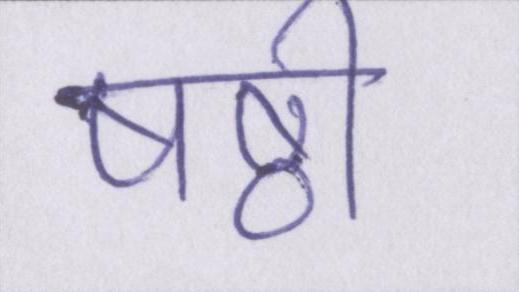 षष्ठी